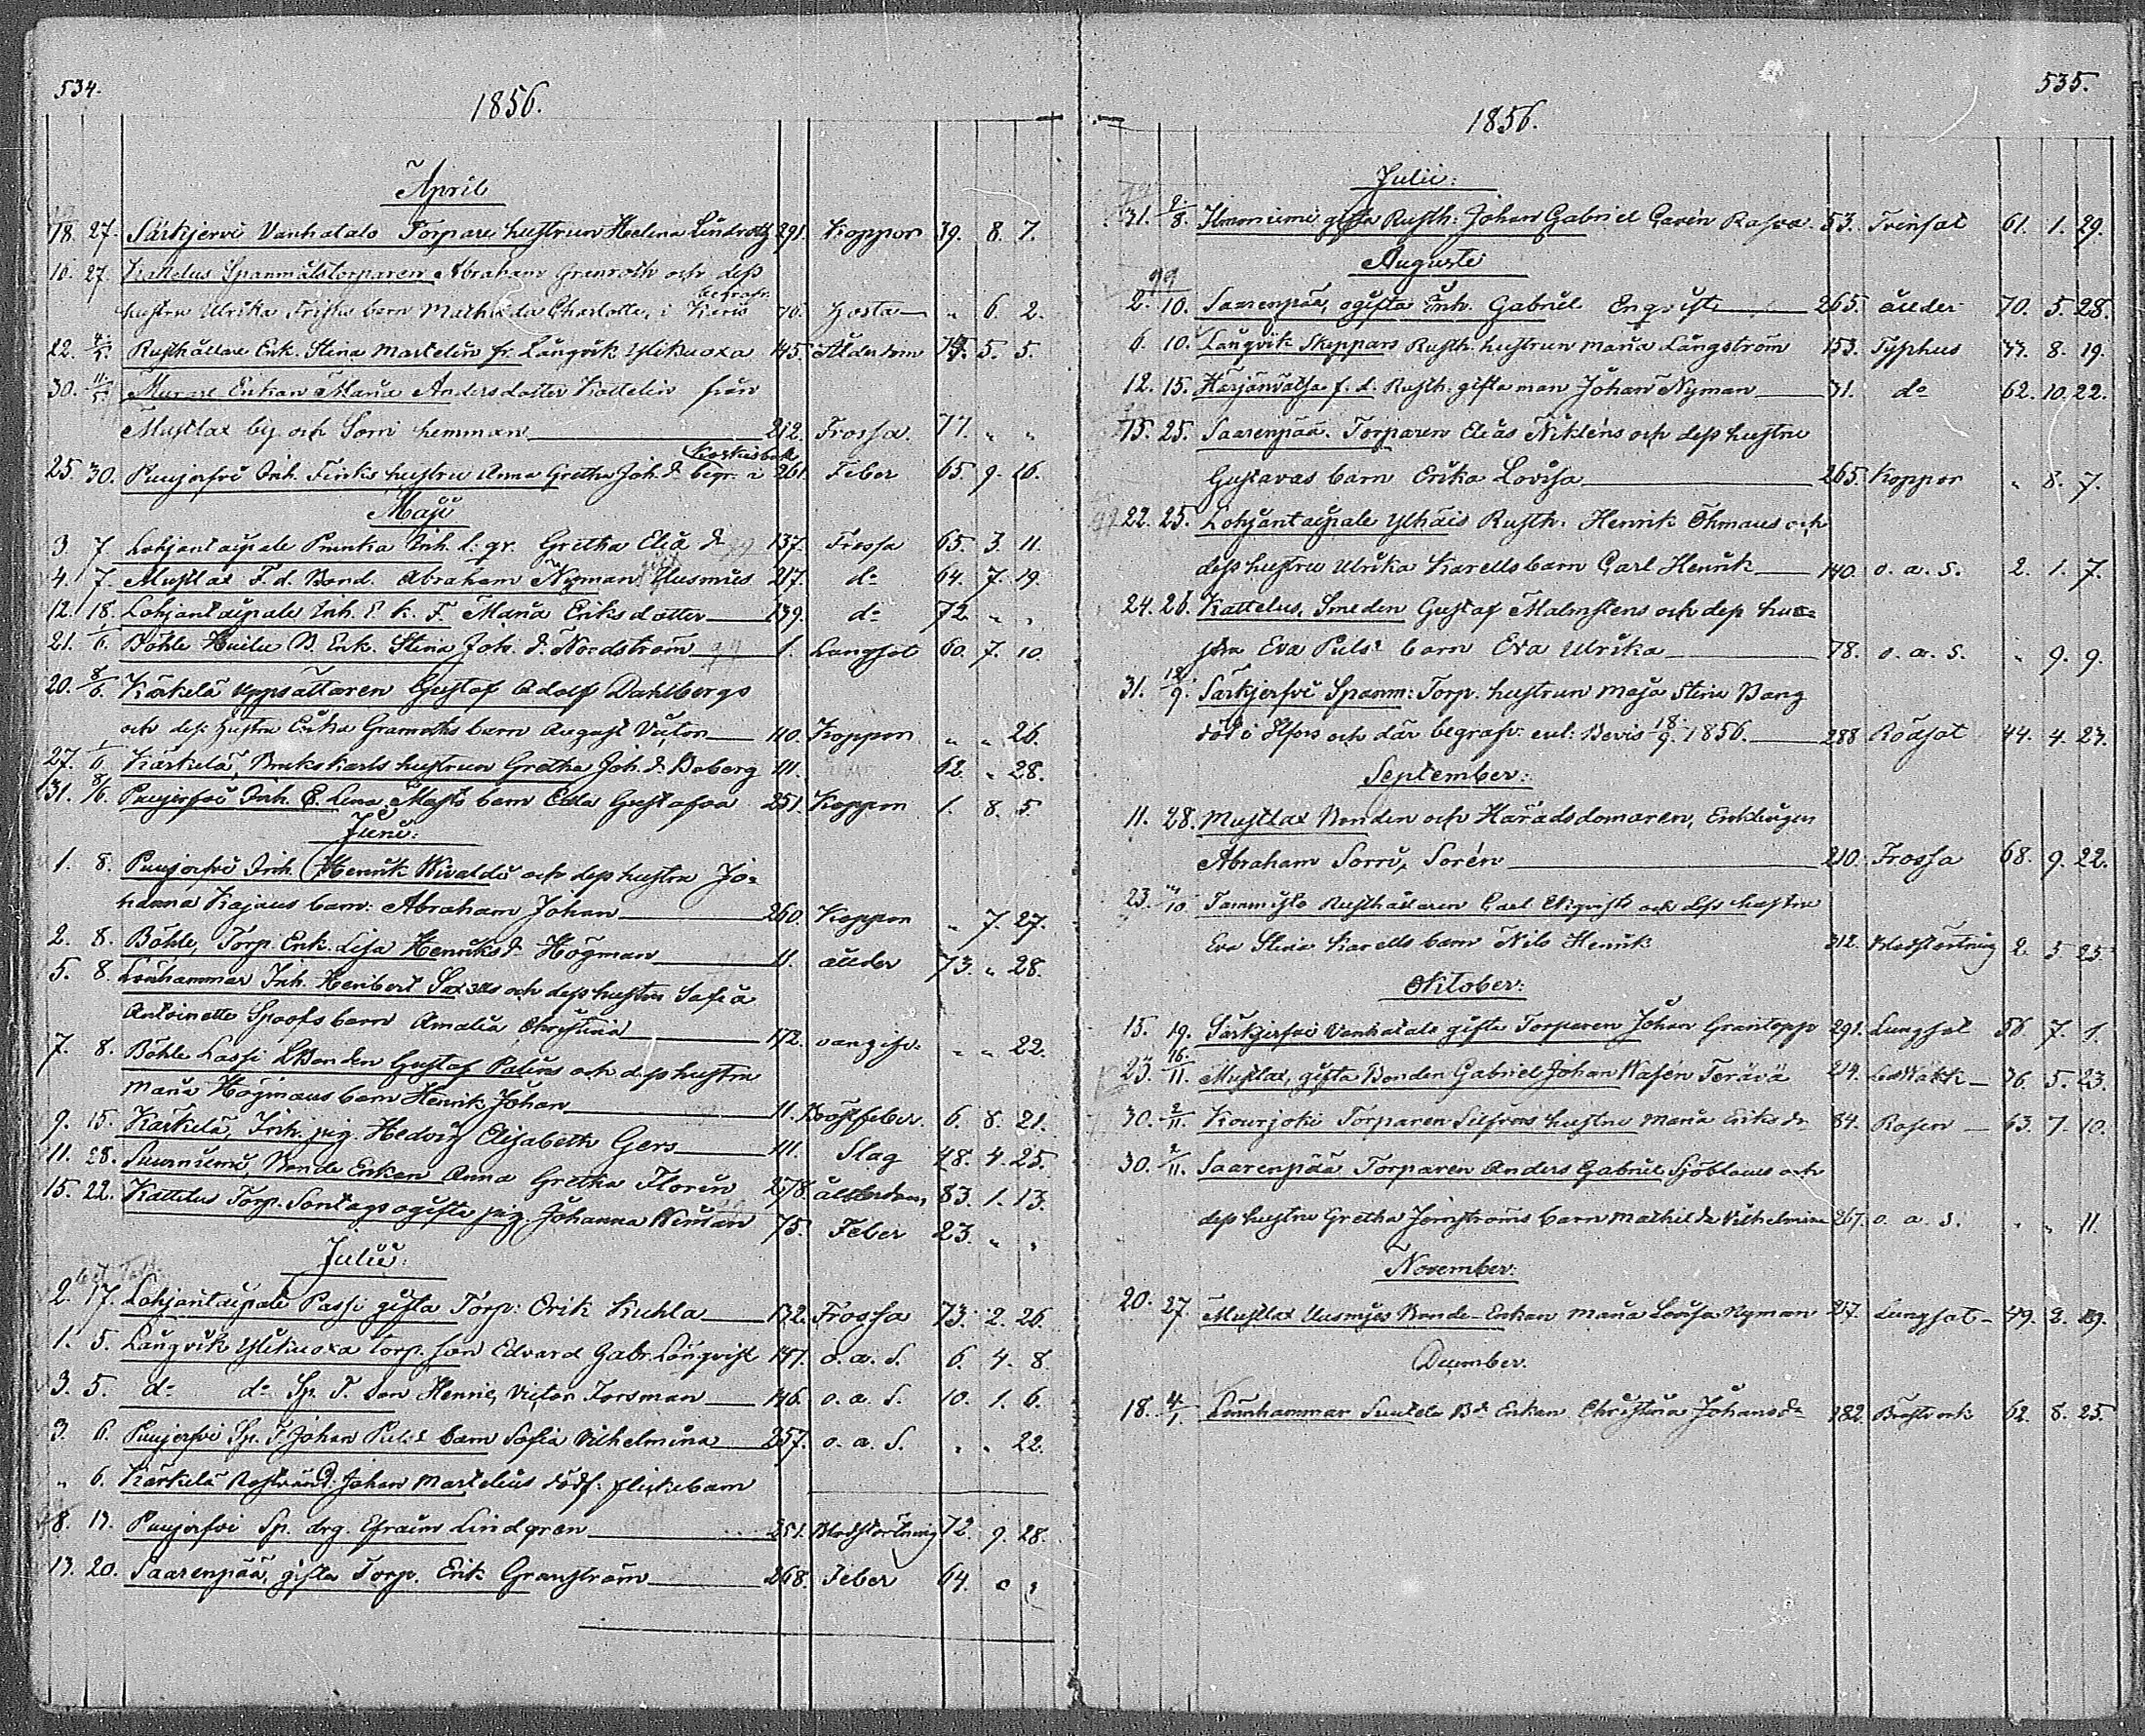 534.
1856.
April
18. 27. Särkjervi Vanhatalo Torpare hustrun Helena Lindroth 291. Koppor 39. 8. 7.
10. 27. Kattelus Spanmålstorparen Abraham Granroth och dess
begrafn.
hustru Ulrika Frisks barn Mathilda Charlotta, i Kiris 76. Hosta " 6. 2.
22. 4/5. Rusthållare Enk. Stina Martelin fr. Långvik Ylikuoxa 145. Ålderdom 5. 5.
30. 11/5. Murare Enkan Maria Andersdotter Kattelin från
Mustlax by och Sorri hemman 212. Frossa 77. " "
Koskisbacka
25. 30. Puujerfvi Inh. Finks hustru Anna Gretha Joh. d. begr. i 261. Feber 65. 9. 16.
Maji
3. 7. Lohjantaipale Prunka Inh. l. gr. Gretha Elia dr 137. Frossa 65. 3. 11.
4. 7. Mustlax F. d. Bond. Abraham Nyman Uusmies 217. do 64. 7. 19.
12. 18. Lohjantaipale Inh. E. k. F. Maria Eriksdotter 139. do 72. " "
21. 1/6. Böhle Huilu B. Enk. Stina Joh. d. Nordström 1. Lungsot 60. 7. 10.
20. 8/6. Kärkelä Uppsättaren Gustaf Adolf Dahlbergs
och dess hustru Erika Granroths barn August Victor 110. Koppor " " 26.
27. 1/6. Kärkelä, Brukskarls hustrun Gretha Joh. d. Boberg 111. 62. " 28.
31. 8/6. Puujerfvi Inh. E. Lena Masts barn Edla Gustafva 251. Koppor 1. 8. 5.
Junii:
1. 8. Puujerfvi Inh. Henrik Wivaldi och dess hustru Jo=
hanna Kajaus barn: Abraham Johan 260. Koppor " 7. 27.
2. 8. Böhle, Torp. Enk. Lisa Henriksd. Högman 11. ålder 73. " 28.
5. 8. Lönhammar Inh. Heribert Saxells och dess hustru Safia
Antoinette Spoofs barn Amalia Christina 172. oangifv. " " 22.
7. 8. Böhle Lassi Bonden Gustaf Palins och dess hustru
Maria Högmans barn Henrik Johan 11. Bröstfeber 6. 8. 21.
9. 15. Kärkelä, Inh. pig. Hedvig Elisabeth Gers 111. Slag 48. 4. 25.
11. 28. Suurniemi, Bonde Enkan Anna Gretha Floren 278. ålderdom, 83. 1. 13.
15. 22. Kattelus Torp. Sontags ogifta pig. Johanna Wiman 75. Feber 23. " "
Julii:
2. 17. Lohjantaipale Passi gifta Torp: Erik Kuhla 132. Frossa 73. 2. 26.
1. 5. Långvik Ylikuoxa torp. son Edvard Gabr. Lönqvist 147. o. a. S. 6. 4. 8.
3. 5. do do Sp. T. son Henric Victor Forsman 146. o. a. S. 10. 1. 6.
3. 6. Puujerfvi Sp. T. Johan Puls barn Sofia Vilhelmina 257. o. a. S. " " 22.
" 6. Kärkelä Johan Martelins dödf: flickebarn
8. 13. Puujerfvi Sp. drg. Efraim Lindgren 251. Blodstörtning 72. 9. 28.
13. 20. Saarenpää, gifta Torp. Erik Granström 268. Feber 64. " "
535.
1856.
Julii:
31. 2/8. Ilmoniemi gifta Rusth: Johan Gabriel Garén Rasva 53. Tvinsot 61. 1. 29.
Augusti
2. 10. Saarenpää, ogifta Inh. Gabriel Enqvist 265. ålder 70. 5. 28.
6. 10. Långvik Skeppars Rusth. hustrun Maria Långström 153. Typhus 33. 8. 19.
12. 15. Harjänvatsa f. d. Rusth. gifta man Johan Nyman 31. do 62. 10. 22.
15. 25. Saarenpää. Torparen Elias Nikléns och dess hustru
Gustavas barn Erika Lovisa 265. Koppor " 8. 7.
22. 25. Lohjantaipale Ylhäis Rusth. Henrik Öhmans och
dess hustru Ulrika Karells barn Carl Henrik 140. o. a. s. 2. 1. 7.
24. 26. Kattelus, Smeden Gustaf Malmstens och dess hus=
tru Eva Puls: barn Eva Ulrika 78. o. a. s. " 9. 9.
31. 12/9. Särkjerfvi Spanm: Torp. hustrun Maja Stina Bang
död i Hfors och där begrafv: enl: Bevis 18/9. 1856. 288 Rödsot 44. 4. 27.
September:
11. 28. Mustlax Bonden och Häradsdomaren, Enklingen
Abraham Sorri, Sorén 210. Frossa 68. 9. 22.
23. 10 Tammisto Rusthållaren Carl Ekqvists och dess hustru
Eva Stina Karells barn Nils Henrik 312. Blodstörtning 2. 5. 25.
Oktober:
15. 19. Särkjerfvi Vanhatalo gifta Torparen Johan Grantopp 291. Lungsot 56. 7. 1.
23. 16/11. Mustlax, gifta Bonden Gabriel Johan Wafén Terävä 214. Ledvärk 36. 5. 23.
30. 2/11. Kourjoki Torparen Silfvers hustru Maria Eriksdr 84. Rosen 63. 7. 10.
30. 2/11. Saarenpää Torparen Anders Gabriel Sjöbloms och
dess hustru Gretha Jernströms barn Mathilda Vilhelmina 267. o. a. s. " " 11.
November:
20. 27. Mustlax Uusmies Bonde-Enkan Maria Lovisa Nyman 217. Lungsot 49. 2. 19.
December.
18. 4/1. Lönnhammar Suutela Bd. Enkan Christina Johansdr 182. Bröstvärk 62. 8. 25.